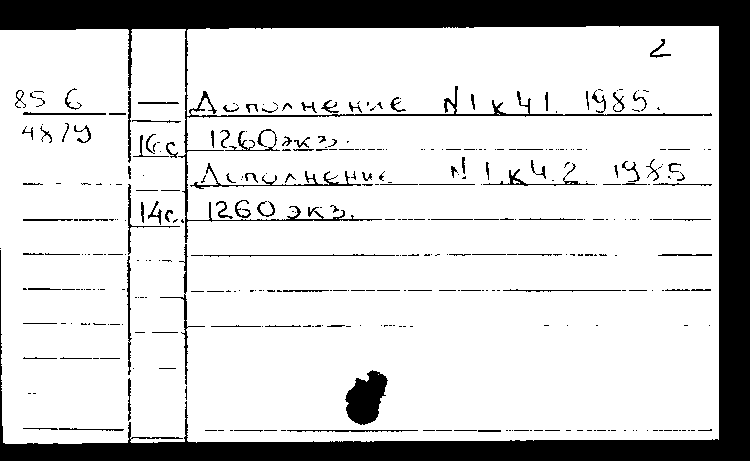 2
85 6 — Дополнение N 1 к Ч 1. 1985.
4879 16с 1260 экз.
Дополнение N 1. к Ч. 2. 1985
14с. 1260 экз.